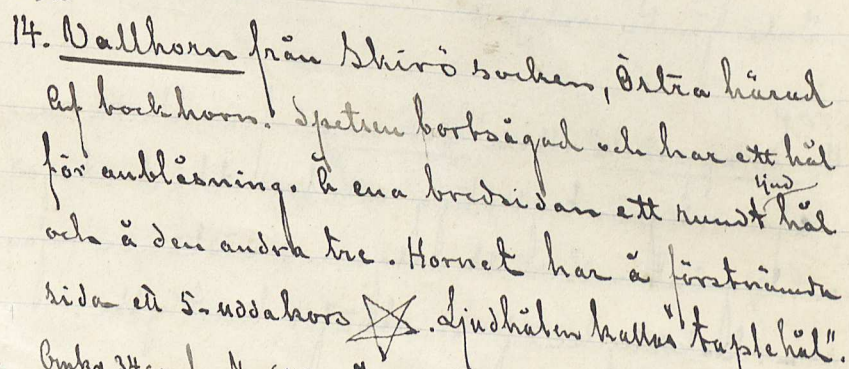 14. Vallhorn från Skirö socken, Östra härad
Af bockhorn. Spetsen bortsågad och har ett hål
för anblåsning. Å ena bredsidan ett rundt ljud hål
och å den andra tre. Hornet har å förstnämda
sida ett 5-uddakors. Ljudhålen kallas "taplehål".